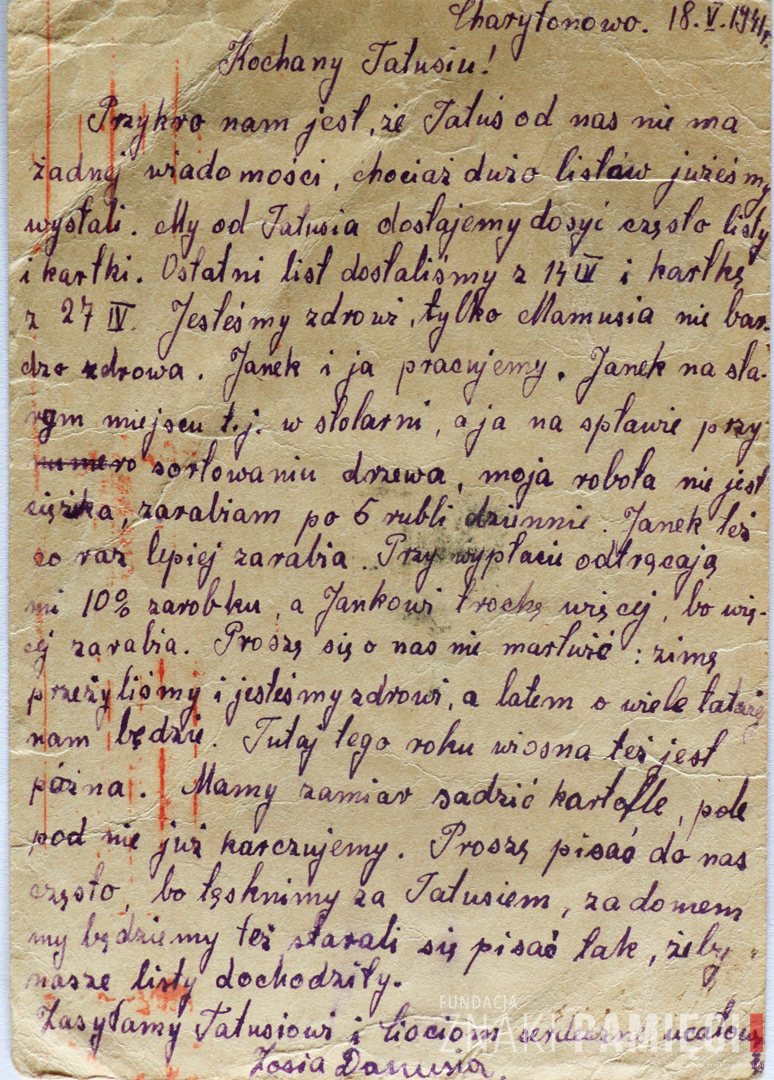 Charytonowo. 18.V.1941r.
Kochany Tatusiu!
Przykro nam jest, że Tatuś od nas nie ma
żadnej wiadomości, chociaż dużo listów jużeśmy
wysłali. My od Tatusia dostajemy dosyć często listy
i kartki. Ostatni list dostaliśmy z 14 IV i kartkę
z 27 IV. Jesteśmy zdrowi, tylko Mamusia nie bar-
dzo zdrowa. Janek i ja pracujemy. Janek na sta-
rym miejscu t.j. w stolarni, a ja na spławie przy
sortowaniu drzewa, moja robota nie jest
ciężka, zarabiam po 5 rubli dziennie. Janek też
co raz lepiej zarabia. Przy wypłacie odtrącają
mi 10% zarobku, a Jankowi trochę więcej, bo wię-
cej zarabia. Proszę się o nas nie martwić: zimę
przeżyliśmy i jesteśmy zdrowi, a latem o wiele łatwiej
nam będzie. Tutaj tego roku wiosna też jest
późna. Mamy zamiar sadzić kartofle, pole
pod nie już karczujemy. Proszę pisać do nas
często, bo tęsknimy za Tatusiem, za domem
my będziemy też starali się pisać tak, żeby
nasze listy dochodziły.
Zasyłamy Tatusiowi i Ciociom serdeczne ucałow.
Zosia Danusia.
FUNDACJA
ZNAKI PAMIĘCI